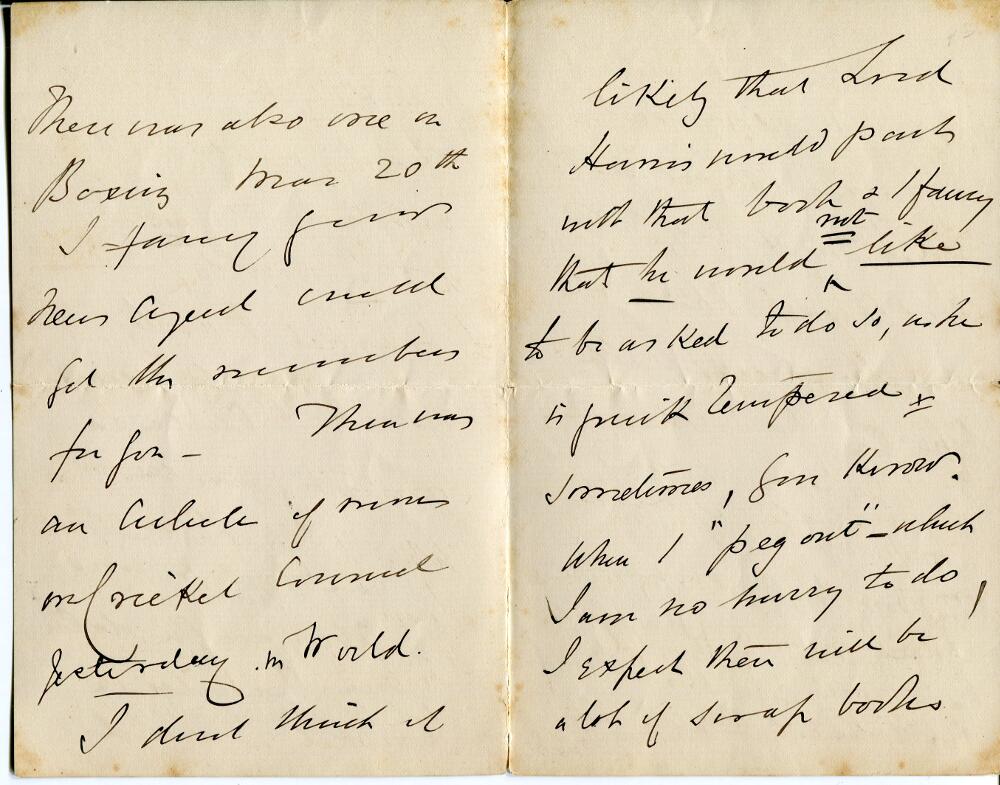 There was also one on
Boxing Mar 20th
I fancy your
News Agent could
get the numbers
for you – There was
an Article of mine
on Cricket Council
yesterday in World.
I dont think it
likely that Lord
Harris would part
with that book & I fancy
that he would not like
to be asked to do so, as he
is quick tempered
sometimes, you know.
When I "peg out" – which
I am no hurry to do,
I expect there will be
a lot of scrap books